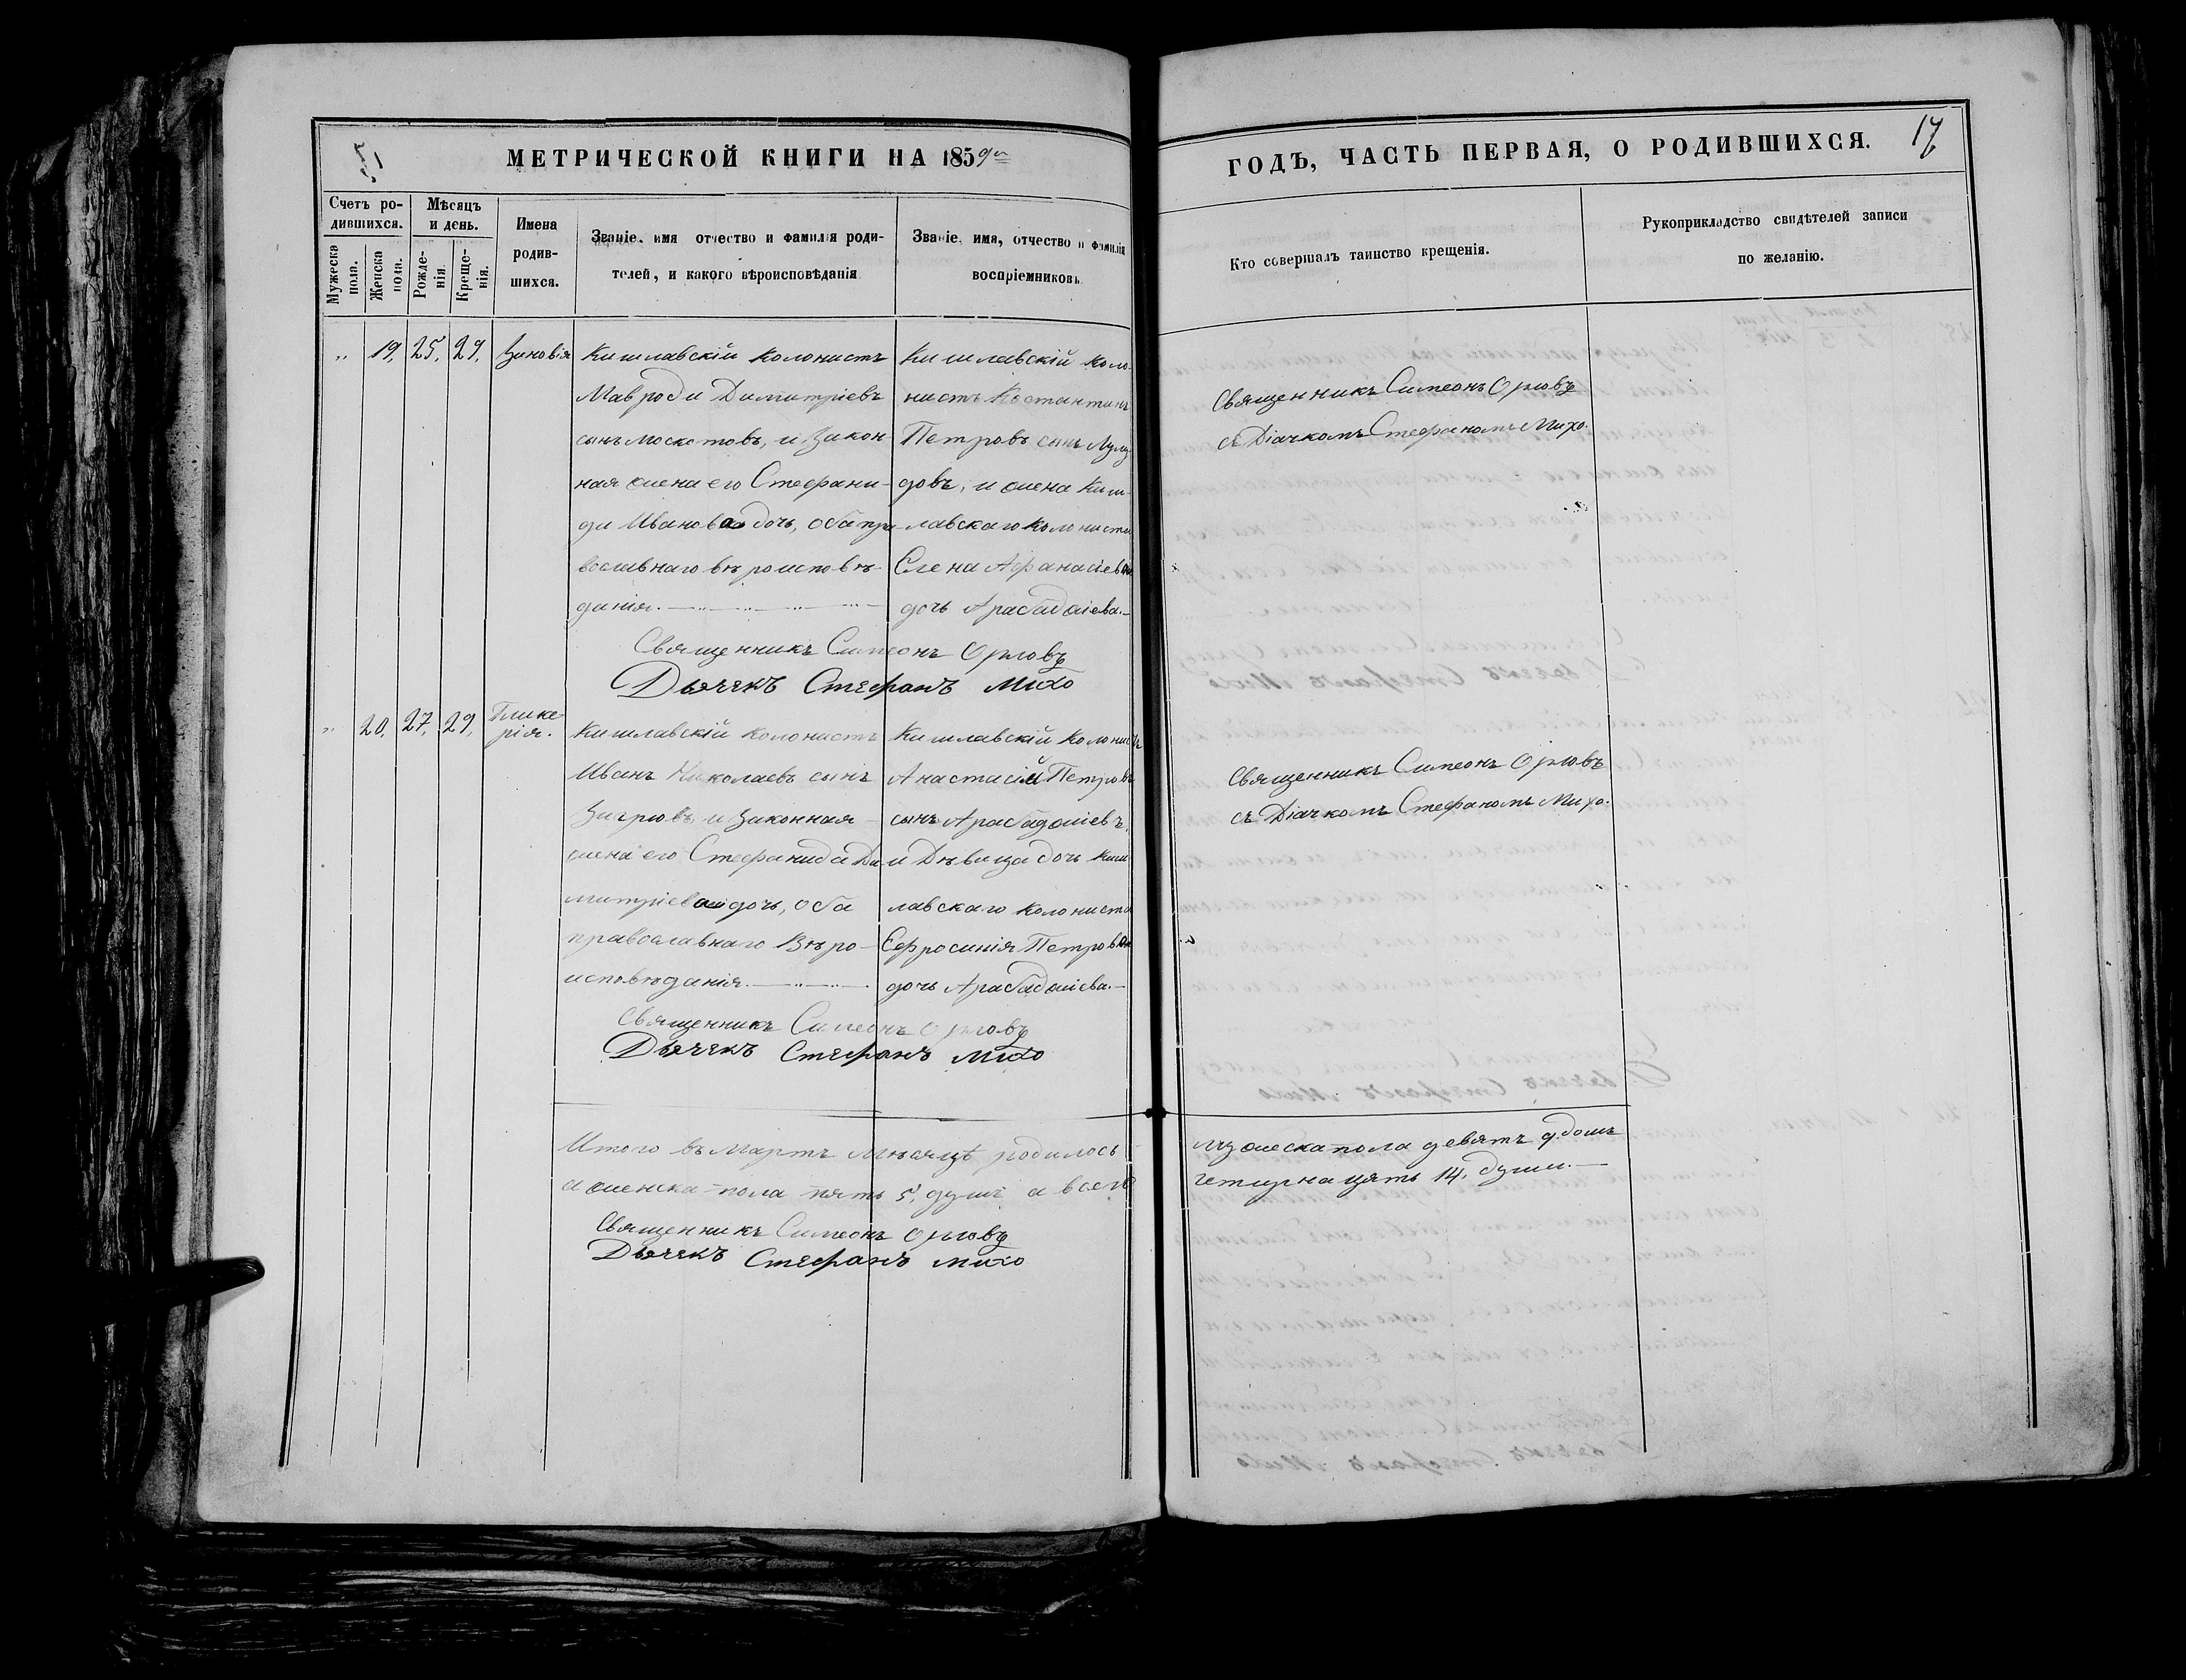 МЕТРИЧЕСКОЙ КНИГИ НА 1859й
ГОДЪ, ЧАСТЬ ПЕРВАЯ, О РОДИВШИХСЯ.
17
Счетъ ро-
дившихся.
Мужеска
пола.
Женска
пола.
Мѣсяцъ
и день.
Рожде-
нія.
Креще-
нія.
Имена
родив-
шихся.
Званіе, имя отчество и фамилія роди-
телей, и какого вѣроисповѣданія
Званіе, имя, отчество и фамилія
воспріемниковъ
Кто совершалъ таинство крещенія.
Рукоприкладство свидѣтелей записи
по желанію.
„ 19, 25, 29, Зиновія
Кишлавскій колонистъ
Мавроди Димитріевъ
сынъ Москотовъ, и закон
ная жена его Стефани-
да Иванова дочь, оба пра-
вославнаго вѣроисповѣ-
данія.
Кишлавскій коло-
нистъ Костантинъ
Петровъ сынъ
довъ, и жена Киш-
лавскаго колониста
Елена Афанасіева
дочь Арабаджіева.
Священникъ Симеонъ Орловъ
съ Діачкомъ Стефаномъ Михо.
Священникъ Симеонъ Орловъ
Дьячекъ Стефанъ Михо
„ 20, 27, 29, Глике
рія.
Кишлавскій колонистъ
Иванъ Николаевъ сынъ
и законная
жена его Стефанида Ди
митріева дочь, оба
православнаго Вѣро-
исповѣданія.
Кишлавскій колонистъ
Анастасій Петровъ
сынъ Арабаджіевъ,
и Дѣвица дочь Киш
лавскаго колониста
Ефросинія Петрова
дочь Арабаджіева.
Священникъ Симеонъ Орловъ
съ Діачкомъ Стефаномъ Михо.
Священникъ Симеонъ Орловъ
Дьячекъ Стефанъ Михо
Итого въ Мартѣ Мѣсяцѣ родилось
мужеска пола девять 9. душъ
а женска пола пять 5, душъ а всего
четирнацять 14. души.
Священникъ Симеонъ Орловъ
Дьячекъ Стефанъ Михо